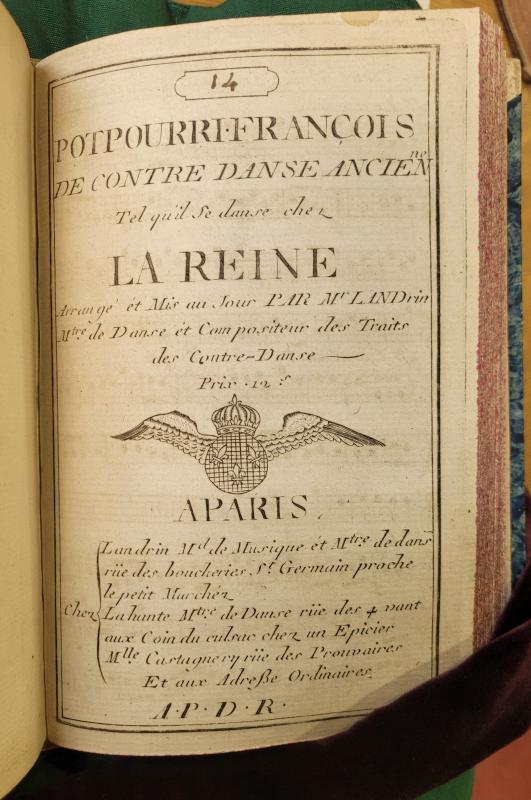 14
POTPOURRI·FRANÇOIS
DE CONTRE DANSE ANCIENne
Tel qu'il Se danse chez
LA REINE
Arrangé èt Mis au Jour PAR Mr LANDrin
Mtre de Danse èt Compositeur des Traits
des Contre-Danse
Prix · 12 s
A PARIS
Chez
Landrin Md de Musique èt Mtre de dans
rüe des boucheries St Germain proche
le petit Marchéz
Lahante Mtre de Danse rüe des 4 vant
aux Coin du culsac chez un Epicier
Mlle Castagnery rüe des Prouvaires
Et aux Adreße Ordinaires
A·P·D·R·